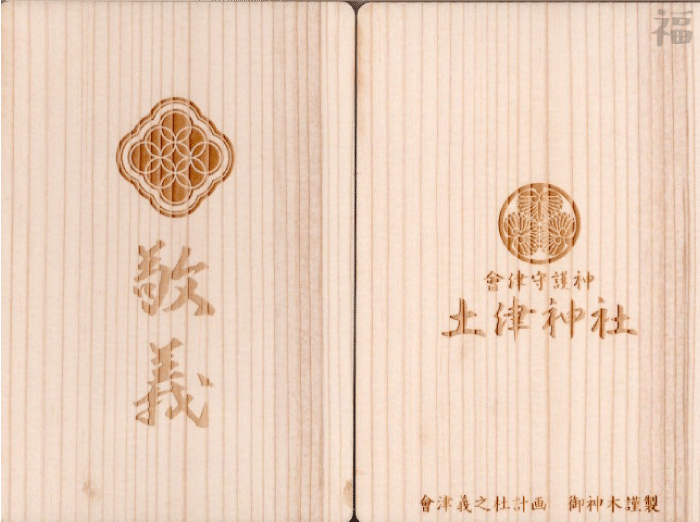 敬義
會津守護神
土津神社
會津義之杜計画 御神木謹製
福